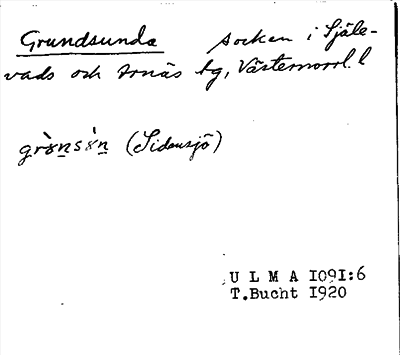 Grundsunda socken i Själe-
vads och Arnäs hg, Västernorrl. l
(Sidensjö)
U L M A 1091:6
T.Bucht 1920